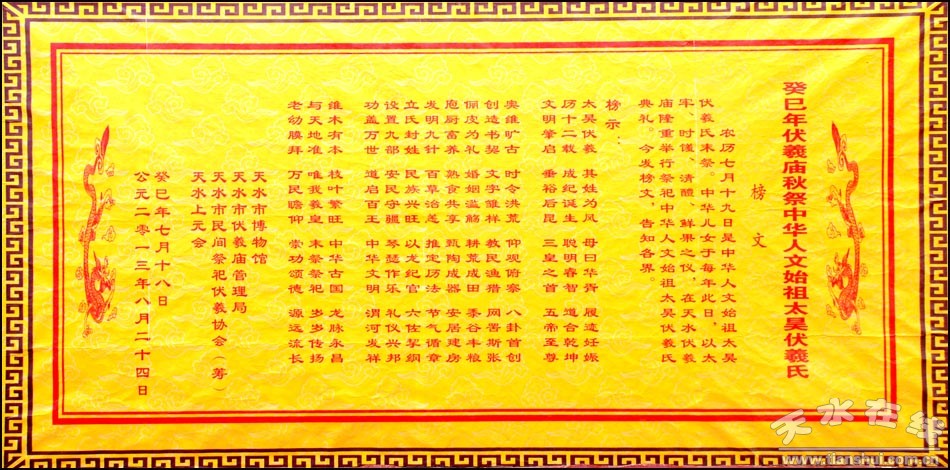 癸巳年伏羲庙秋祭中华人文始祖太昊伏羲氏
榜文
农历七月十九日是中华人文始祖太昊
伏羲氏末祭。中华儿女于每年此日，以太
牢、时馐、清醴、鲜果之仪，在天水伏羲
庙隆重举行祭祀中华人文始祖太昊伏羲氏
典礼。今发榜文，告知各界。
榜示：
太昊伏羲 其姓为风 母曰华胥 履迹妊娠
历十二载 成纪诞生 聪明睿智 道合乾坤
文明肇启 垂裕后昆 三皇之首 五帝至尊
奥维旷古 时令洪荒 仰观俯察 八卦首创
创造书契 文字雏样 教民渔猎 网罟斯张
俪皮为礼 婚姻滥觞 耕荒成田 黍谷丰粮
庖厨畜养 熟食共享 甄陶成器 安居建房
发明九针 百草治恙 推定历法 节气循章
立氏封姓 民族兴旺 以龙纪官 六佐挈纲
设置九部 安民守疆 琴瑟作乐 礼仪兴邦
功盖万世 道启百王 中华文明 渭河发祥
维木有本 枝叶繁旺 中华古国 龙脉永昌
与天地准 唯我羲皇 末祭祭祀 岁岁传扬
老幼膜拜 万民瞻仰 崇功颂德 源远流长
天水市博物馆
天水市伏羲庙管理局
天水市民间祭祀伏羲协会（筹）
天水上元会
癸巳年七月十八日
公元二零一三年八月二十四日
天水在线
www.tianshui.com.cn